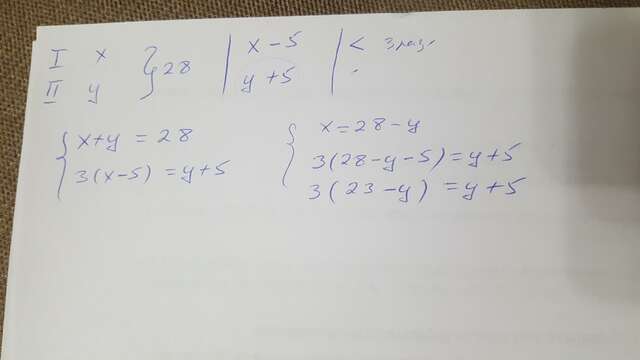 I x } 28 | x - 5 | < 3 раз.
II y y + 5
{ x + y = 28
3(x - 5) = y + 5
{ x = 28 - y
3(28 - y - 5) = y + 5
3(23 - y) = y + 5